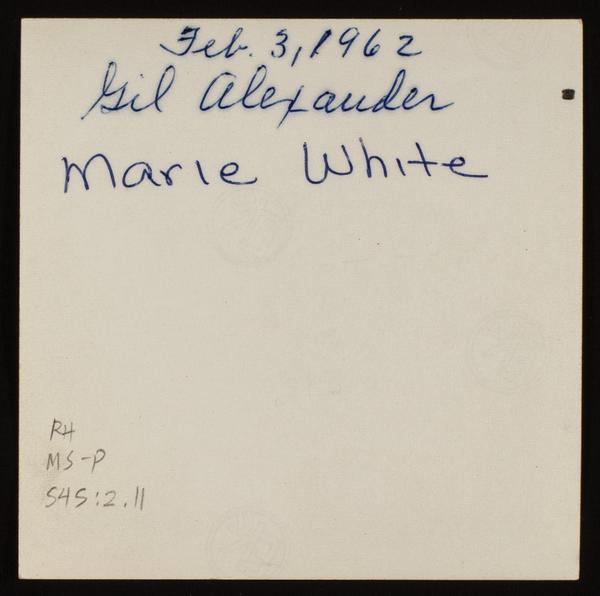 Feb. 3, 1962
Gil Alexander
Marie White
RH
MS-P
545:2.11